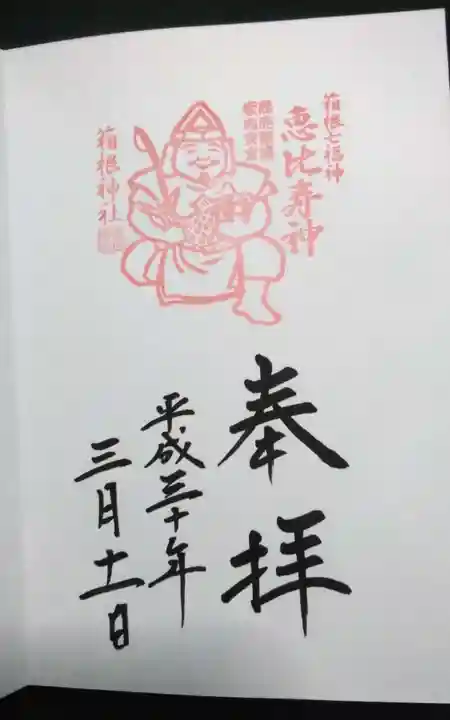 箱根七福神
恵比寿神
箱根神社
奉拝
平成三十年
三月十一日